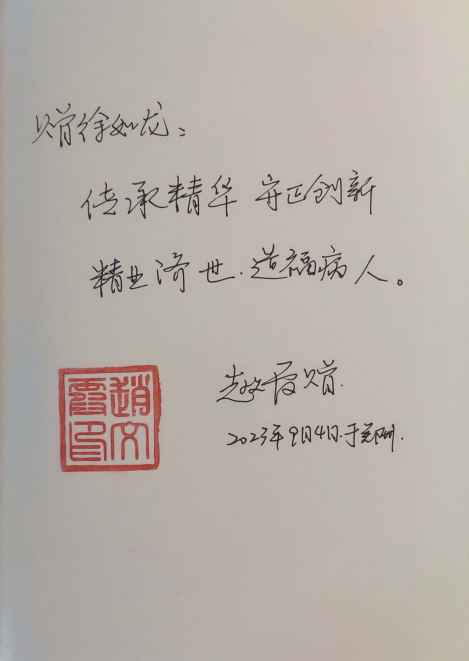 赠徐如龙：
传承精华 守正创新
精业济世.造福病人。
赵文霞赠.
2023年9月4日.于郑州.
趙文
霞印